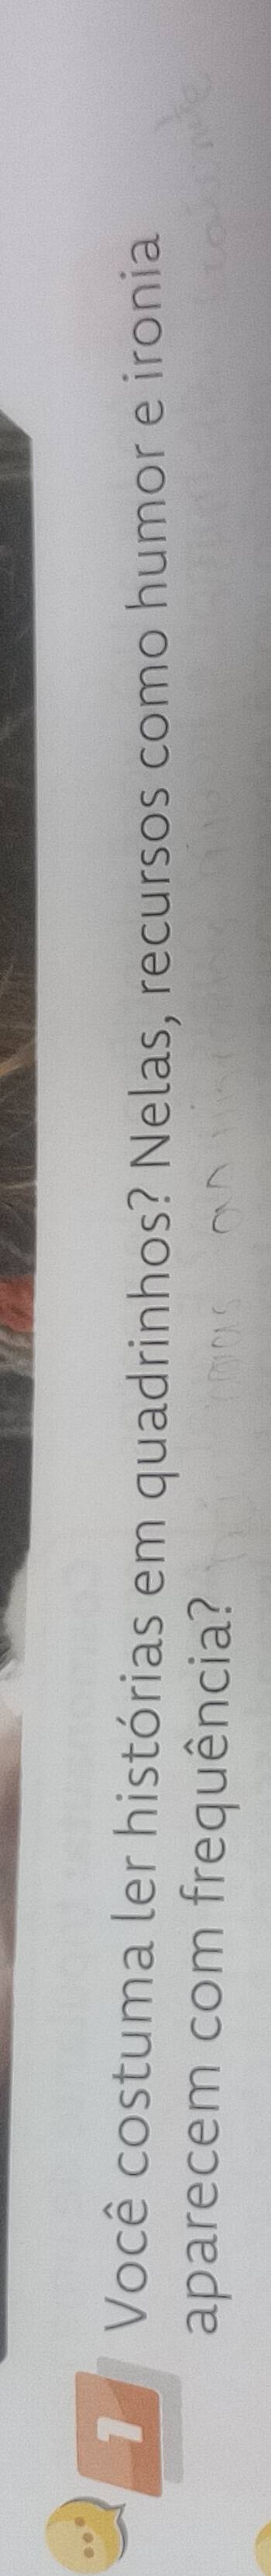 1 Você costuma ler histórias em quadrinhos? Nelas, recursos como humor e ironia
aparecem com frequência?